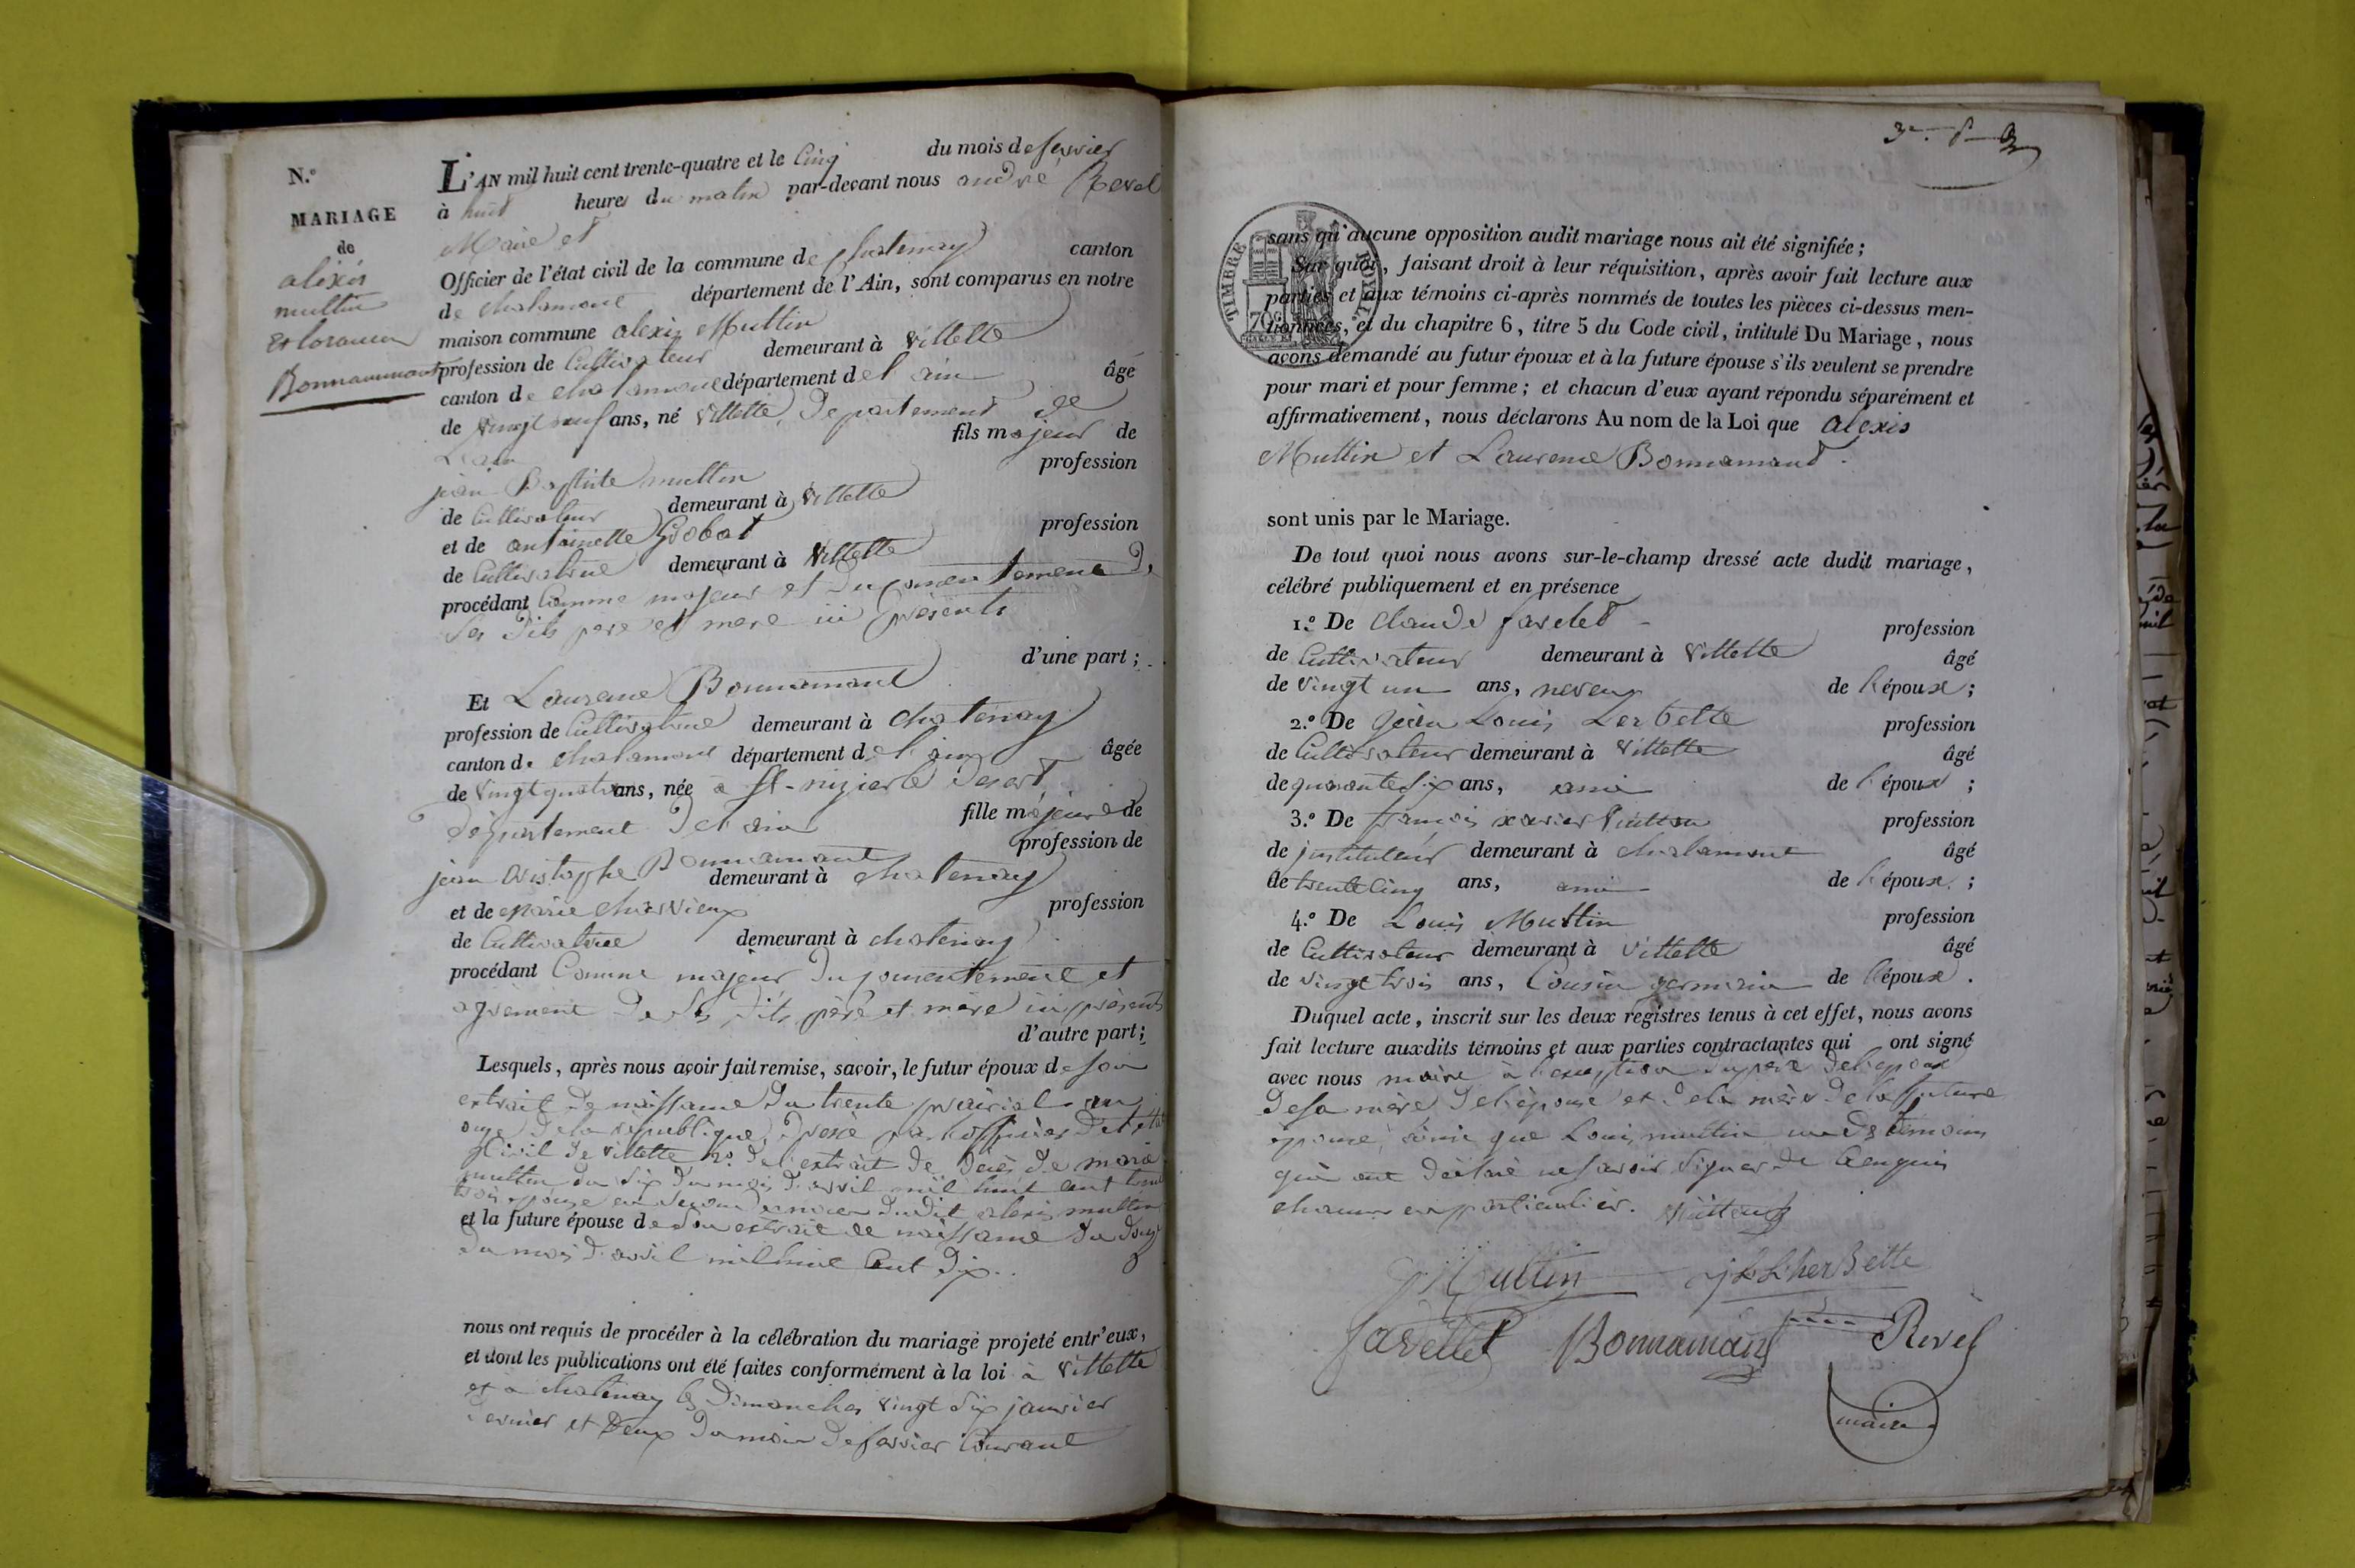 N.°
MARIAGE
de
alexis
muttin
et lorance
Bonnammant
L'AN mil huit cent trente-quatre et le Cinq du mois de favrier
à huit heures du matin par-devant nous andré Revel
Maire et
Officier de l'état civil de la commune de chatenay canton
de chalamont département de l'Ain, sont comparus en notre
maison commune alexis Muttin
profession de Cultivateur demeurant à Villette
canton de chalamont département de l'ain âgé
de vingt neuf ans, né Villette, Departement de
L'ain fils majeur de
jean Baptiste muttin profession
de Cultivateur demeurant à Villette
et de antoinette Grobat profession
de Cultivatrice demeurant à Villette
procédant Comme majeur et du consentement de
ses dits pere et mere ici présents
d'une part;
Et Laurence Bonnamant
profession de Cultivatrice demeurant à chatenay
canton de chalamont département de l'ain âgée
de vingt quatre ans, née à St-nizier le Desert
departement de l'ain fille majeure de
jean cristophe Bonnamant profession de
demeurant à chatenay
et de marie charvieux profession
de Cultivatrice demeurant à chatenay
procédant Comme majeur du consentement et
agrément de ses dits père et mère ici présents
d'autre part;
Lesquels, après nous avoir fait remise, savoir, le futur époux de son
extrait de naissance du trente prairial an
onze de la republique, par l'officier de l'état
Civil de Villette 2.° de l'extrait de décès de marie
muttin du six du mois d'avril mil huit cent trente
trois épouse en dudit alexis muttin
et la future épouse de son extrait de naissance du douze
du mois d'avril mil huit Cent dix.
nous ont requis de procéder à la célébration du mariage projeté entr'eux,
et dont les publications ont été faites conformément à la loi à Villette
et à chatenay les Dimanches vingt six janvier
dernier et Deux du mois de favrier Courant
TIMBRE ROYAL
70c
sans qu'aucune opposition audit mariage nous ait été signifiée;
Sur quoi, faisant droit à leur réquisition, après avoir fait lecture aux
parties et aux témoins ci-après nommés de toutes les pièces ci-dessus men-
tionnées, et du chapitre 6, titre 5 du Code civil, intitulé Du Mariage, nous
avons demandé au futur époux et à la future épouse s'ils veulent se prendre
pour mari et pour femme; et chacun d'eux ayant répondu séparément et
affirmativement, nous déclarons Au nom de la Loi que alexis
Muttin et Laurence Bonnamant.
sont unis par le Mariage.
De tout quoi nous avons sur-le-champ dressé acte dudit mariage,
célébré publiquement et en présence
1.° De Claude favelet profession
de Cultivateur demeurant à Villette âgé
de vingt un ans, neveu de l'époux;
2.° De Jean Louis Lerbette profession
de Cultivateur demeurant à Villette âgé
de quarante six ans, ami de l'époux;
3.° De françois xavier profession
de jnstituteur demeurant à chalamont âgé
de trente cinq ans, ami de l'époux;
4.° De Louis Muttin profession
de Cultivateur demeurant à Villette âgé
de vingt trois ans, Cousin germain de l'époux.
Duquel acte, inscrit sur les deux registres tenus à cet effet, nous avons
fait lecture auxdits témoins et aux parties contractantes qui ont signé
avec nous maire à l'exception du père de l'epoux
de sa mère, de l'épouse et de la mère de la future
épouse, ainsi que Louis muttin un des témoins
qui ont déclaré ne savoir signer de Ce enquis
chacun en particulier.
Muttin jLLherbette
favellet Bonnamant Revel
maire